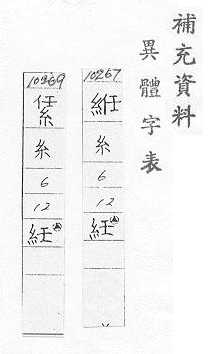 補充資料
異體字表
10267
絍
糸
6
12
紝
10269
糸
6
12
紝